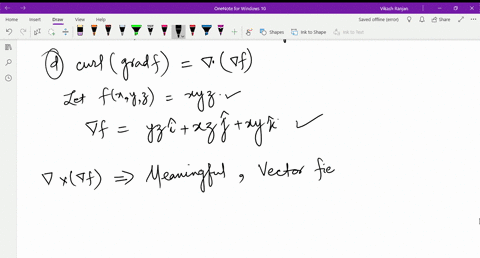 OneNote for Windows 10
Vikash Ranjan
Home Insert Draw View Help
Saved offline (error)
Shapes Ink to Shape
(d) curl (grad f) = ∇·(∇f)
Let f(x,y,z) = xyz. ✓
∇f = yz î + xz ĵ + xy k̂ ✓
∇×(∇f) ⇒ Meaningful, Vector fie